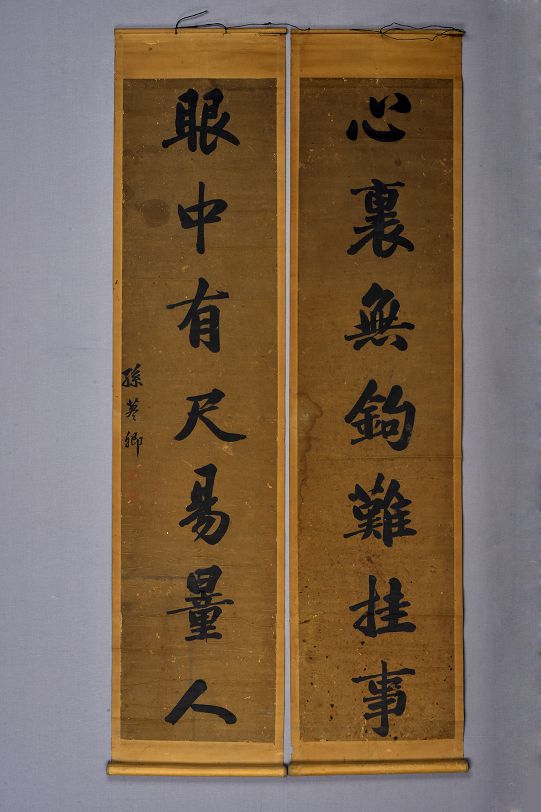 心裏無鉤難挂事
眼中有尺易量人
孫蔘卿